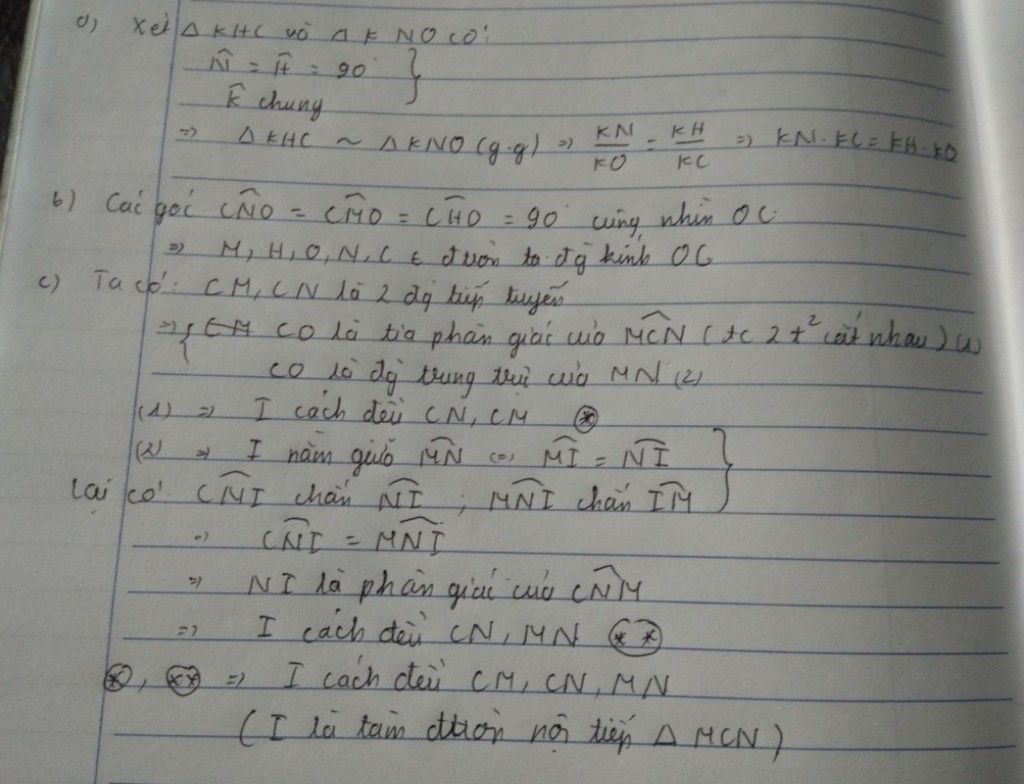 a) Xét △KHC và △KNO có:
N̂ = Ĥ = 90°
K̂ chung
=> △KHC ~ △KNO (g.g) => KN/KO = KH/KC => KN.KC = KH.KO
b) Các góc CNO = CMO = CHO = 90° cùng nhìn OC
=> M, H, O, N, C ∈ đườn to đg kính OC
c) Ta có: CM, CN là 2 đg tiếp tuyến
=> { CO là tia phân giác của MCN (tc 2 t² cắt nhau) (1)
CO là đg trung trực của MN (2)
(1) => I cách đều CN, CM (*)
(2) => I nằm giữa MN <=> MI = NI
Lại có CNI chắn NI ; MNI chắn IM
=> CNI = MNI
=> NI là phân giác của CNM
=> I cách đều CN, MN (**)
(*), (**) => I cách đều CM, CN, MN
(I là tâm đườn nội tiếp △MCN)